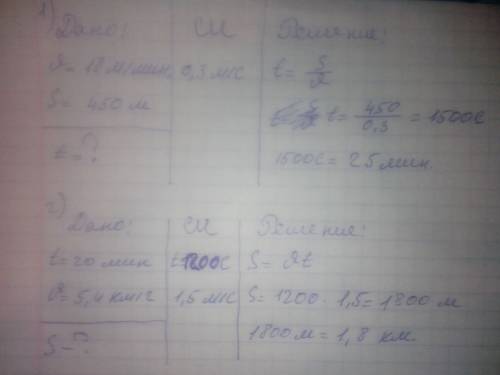 1)
Дано: СИ Решение:
𝜗= 18 м/мин 0,3 м/с t = S/𝜗
S = 450 м t = 450/0,3 = 1500с
t = ? 1500с = 25 мин.
2)
Дано: СИ Решение:
t = 20 мин 1200с S = 𝜗t
𝜗= 5,4 км/ч 1,5 м/с S = 1200 · 1,5 = 1800 м
S - ? 1800 м = 1,8 км.